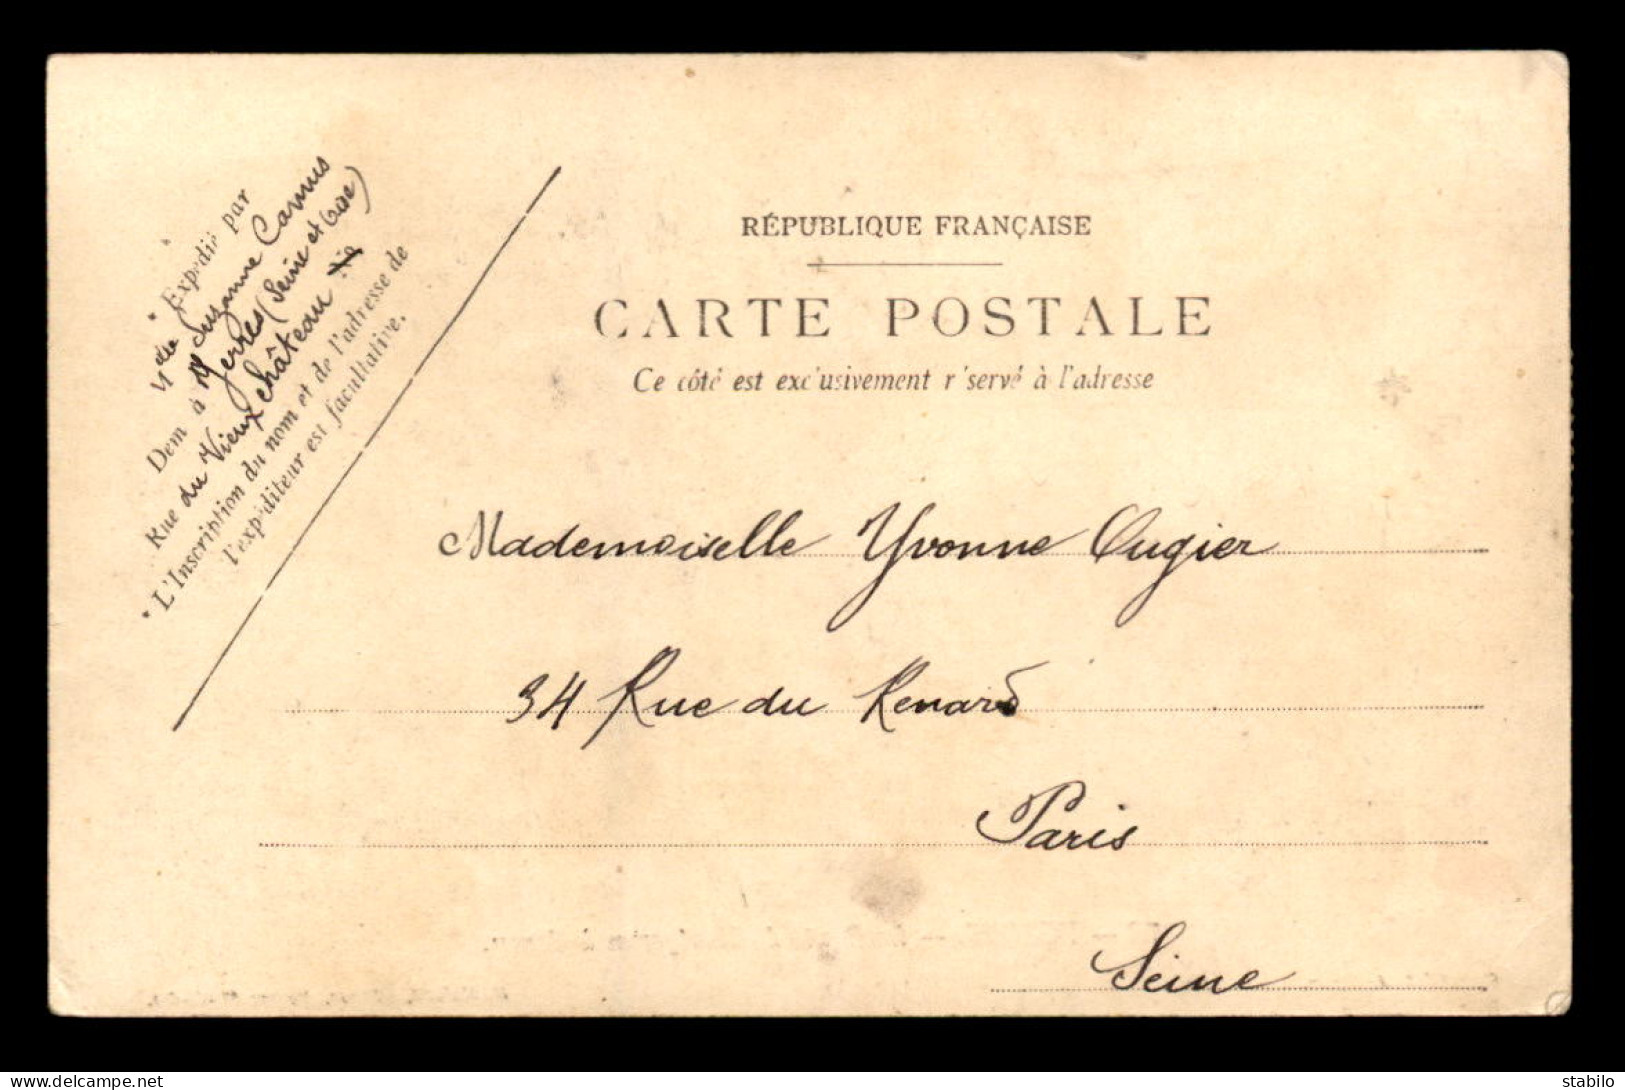 Expédié par
Mdlle Suzanne Camus
Dem à Yerres (Seine et Oise)
Rue du Vieux château
L'Inscription du nom et de l'adresse de
l'expéditeur est facultative.
RÉPUBLIQUE FRANÇAISE
CARTE POSTALE
Ce côté est exc'usivement r'servé à l'adresse
Mademoiselle Yvonne Augier
34 Rue du Renard
Paris
Seine
delcampe.net
stabilo